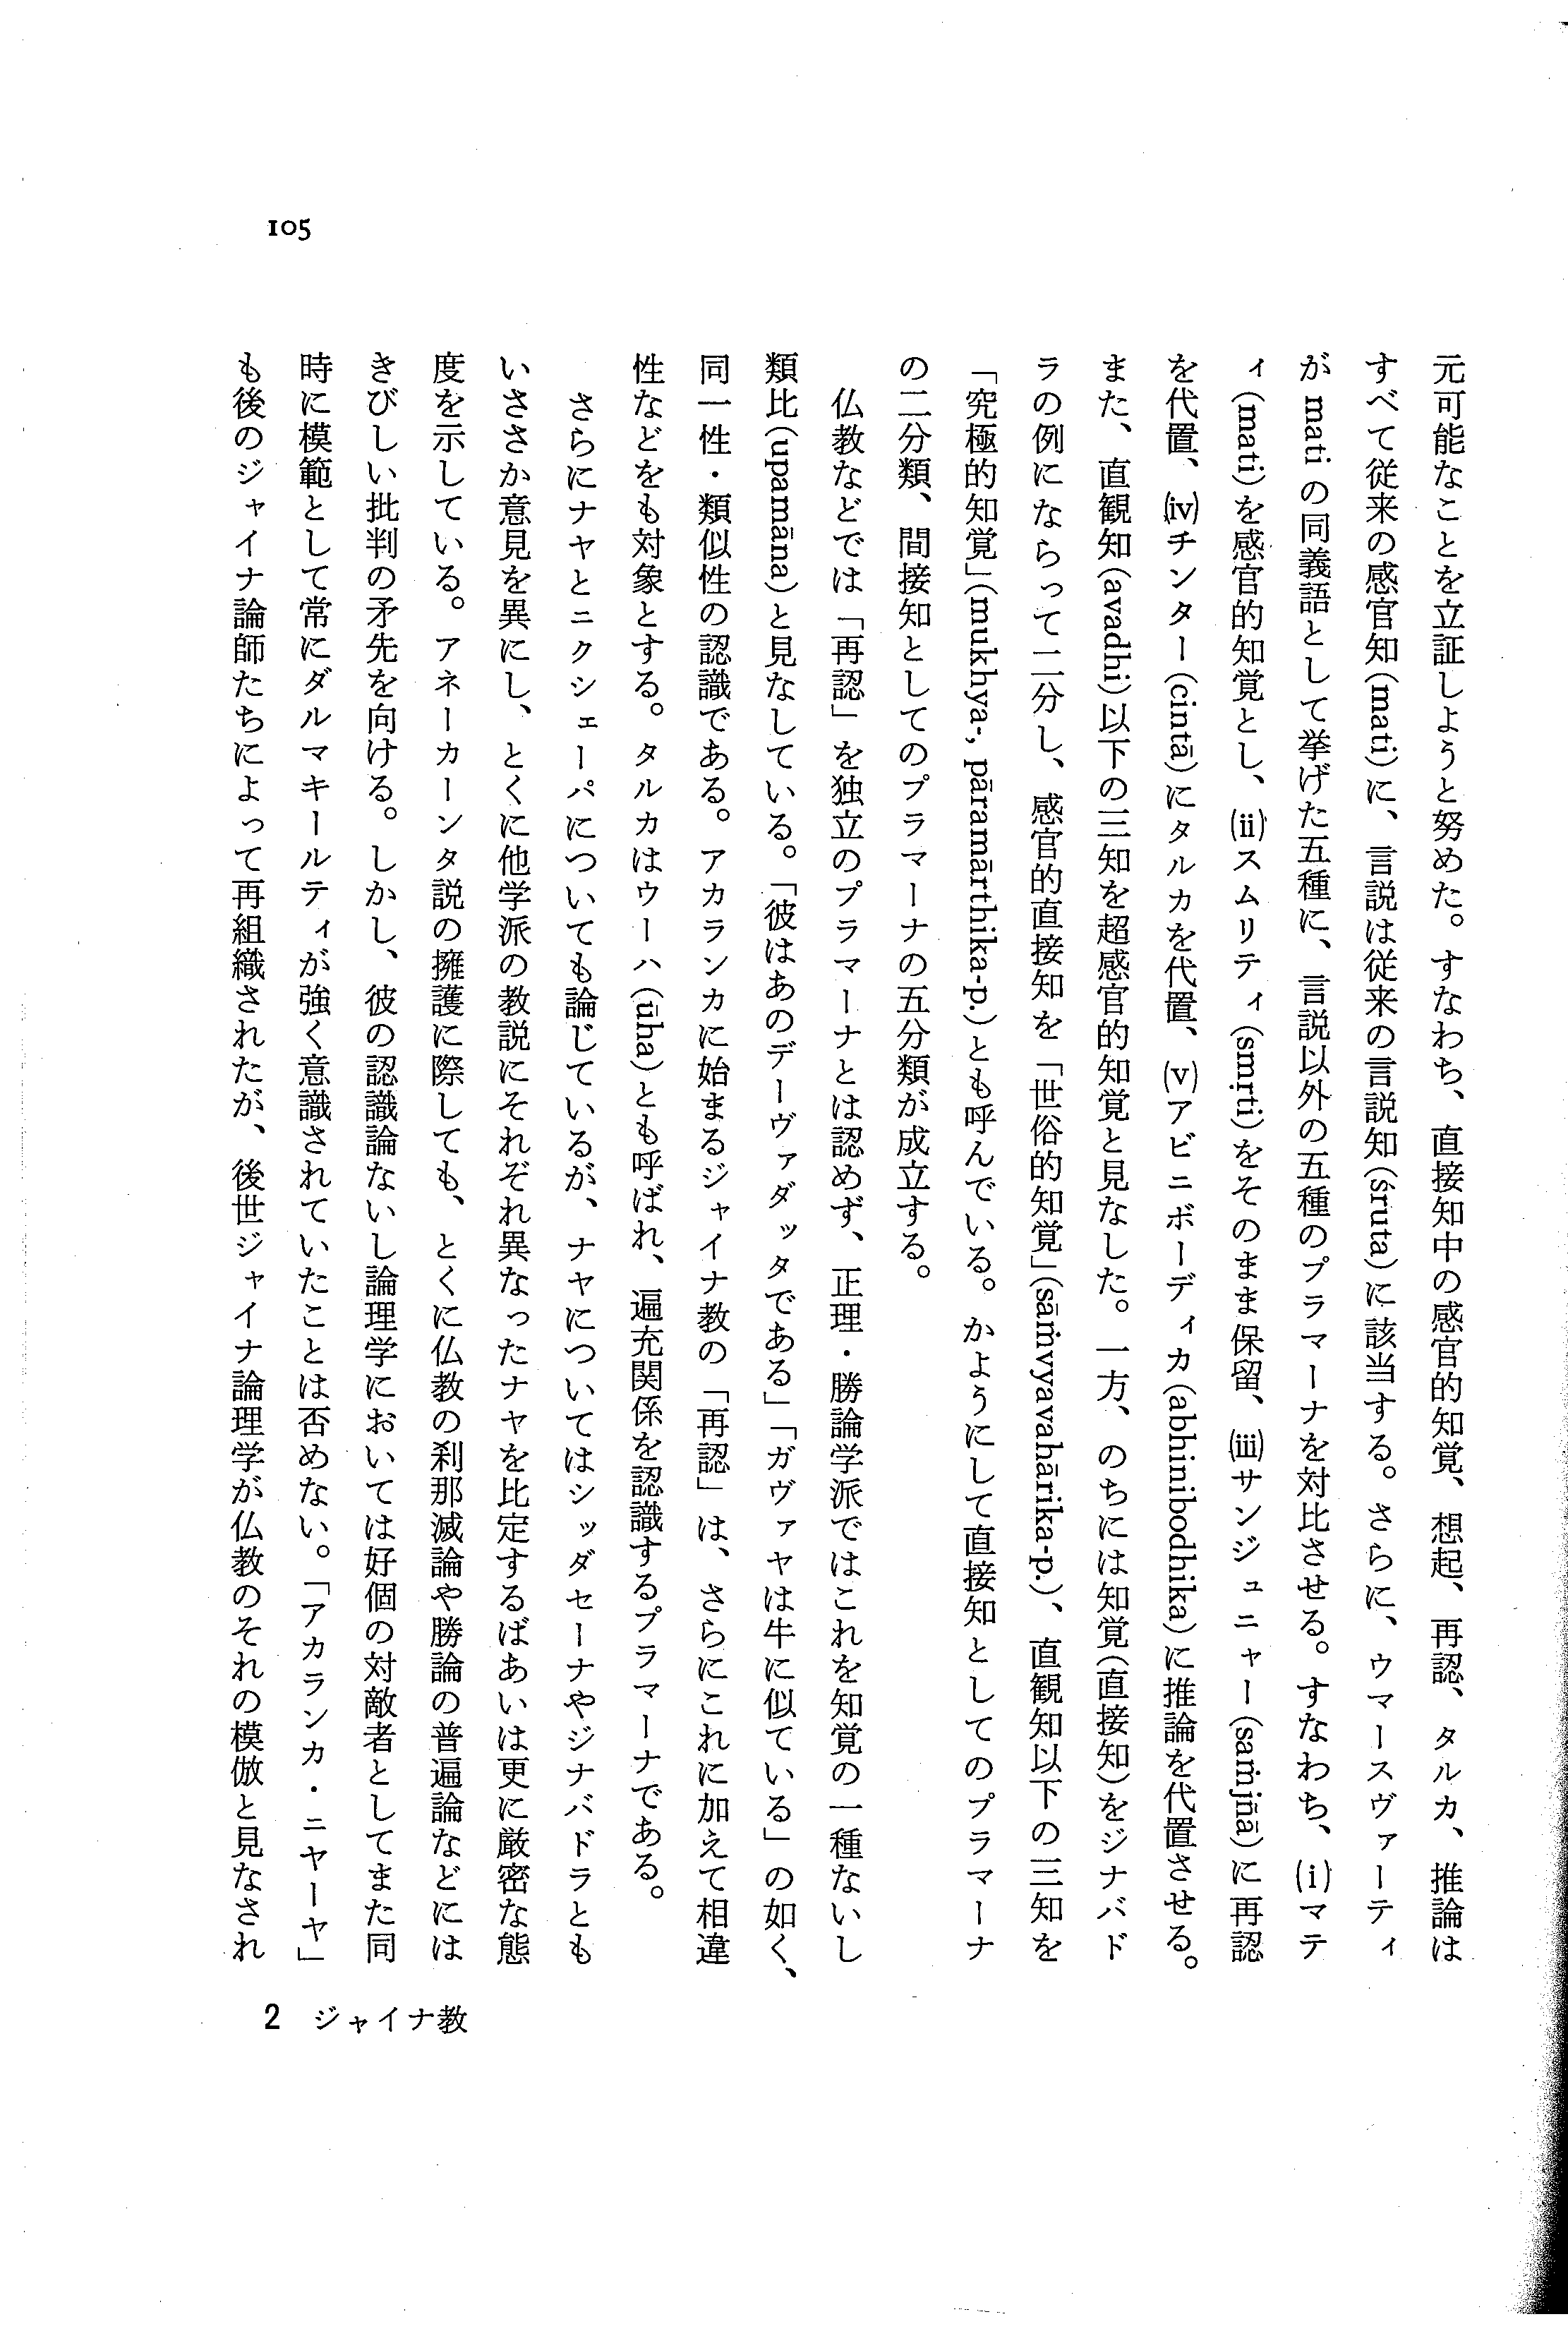 元可能なことを立証しようと努めた。すなわち、直接知中の感官的知覚、想起、再認、タルカ、推論は
すべて従来の感官知(mati)に、言説は従来の言説知(śruta)に該当する。さらに、ウマースヴァーティ
が mati の同義語として挙げた五種に、言説以外の五種のプラマーナを対比させる。すなわち、(i)マテ
ィ(mati)を感官的知覚とし、(ii)スムリティ(smṛti)をそのまま保留、(iii)サンジュニャー(saṁjñā)に再認
を代置、(iv)チンター(cintā)にタルカを代置、(v)アビニボーディカ(abhinibodhika)に推論を代置させる。
また、直観知(avadhi)以下の三知を超感官的知覚と見なした。一方、のちには知覚(直接知)をジナバド
ラの例にならって二分し、感官的直接知を「世俗的知覚」(sāṁvyavahārika-p.)、直観知以下の三知を
「究極的知覚」(mukhya-, pāramārthika-p.)とも呼んでいる。かようにして直接知としてのプラマーナ
の二分類、間接知としてのプラマーナの五分類が成立する。
仏教などでは「再認」を独立のプラマーナとは認めず、正理・勝論学派ではこれを知覚の一種ないし
類比(upamāna)と見なしている。「彼はあのデーヴァダッタである」「ガヴァヤは牛に似ている」の如く、
同一性・類似性の認識である。アカランカに始まるジャイナ教の「再認」は、さらにこれに加えて相違
性などをも対象とする。タルカはウーハ(ūha)とも呼ばれ、遍充関係を認識するプラマーナである。
さらにナヤとニクシェーパについても論じているが、ナヤについてはシッダセーナやジナバドラとも
いささか意見を異にし、とくに他学派の教説にそれぞれ異なったナヤを比定するばあいは更に厳密な態
度を示している。アネーカーンタ説の擁護に際しても、とくに仏教の刹那滅論や勝論の普遍論などには
きびしい批判の矛先を向ける。しかし、彼の認識論ないし論理学においては好個の対敵者としてまた同
時に模範として常にダルマキールティが強く意識されていたことは否めない。「アカランカ・ニヤーヤ」
も後のジャイナ論師たちによって再組織されたが、後世ジャイナ論理学が仏教のそれの模倣と見なされ
2 ジャイナ教
105